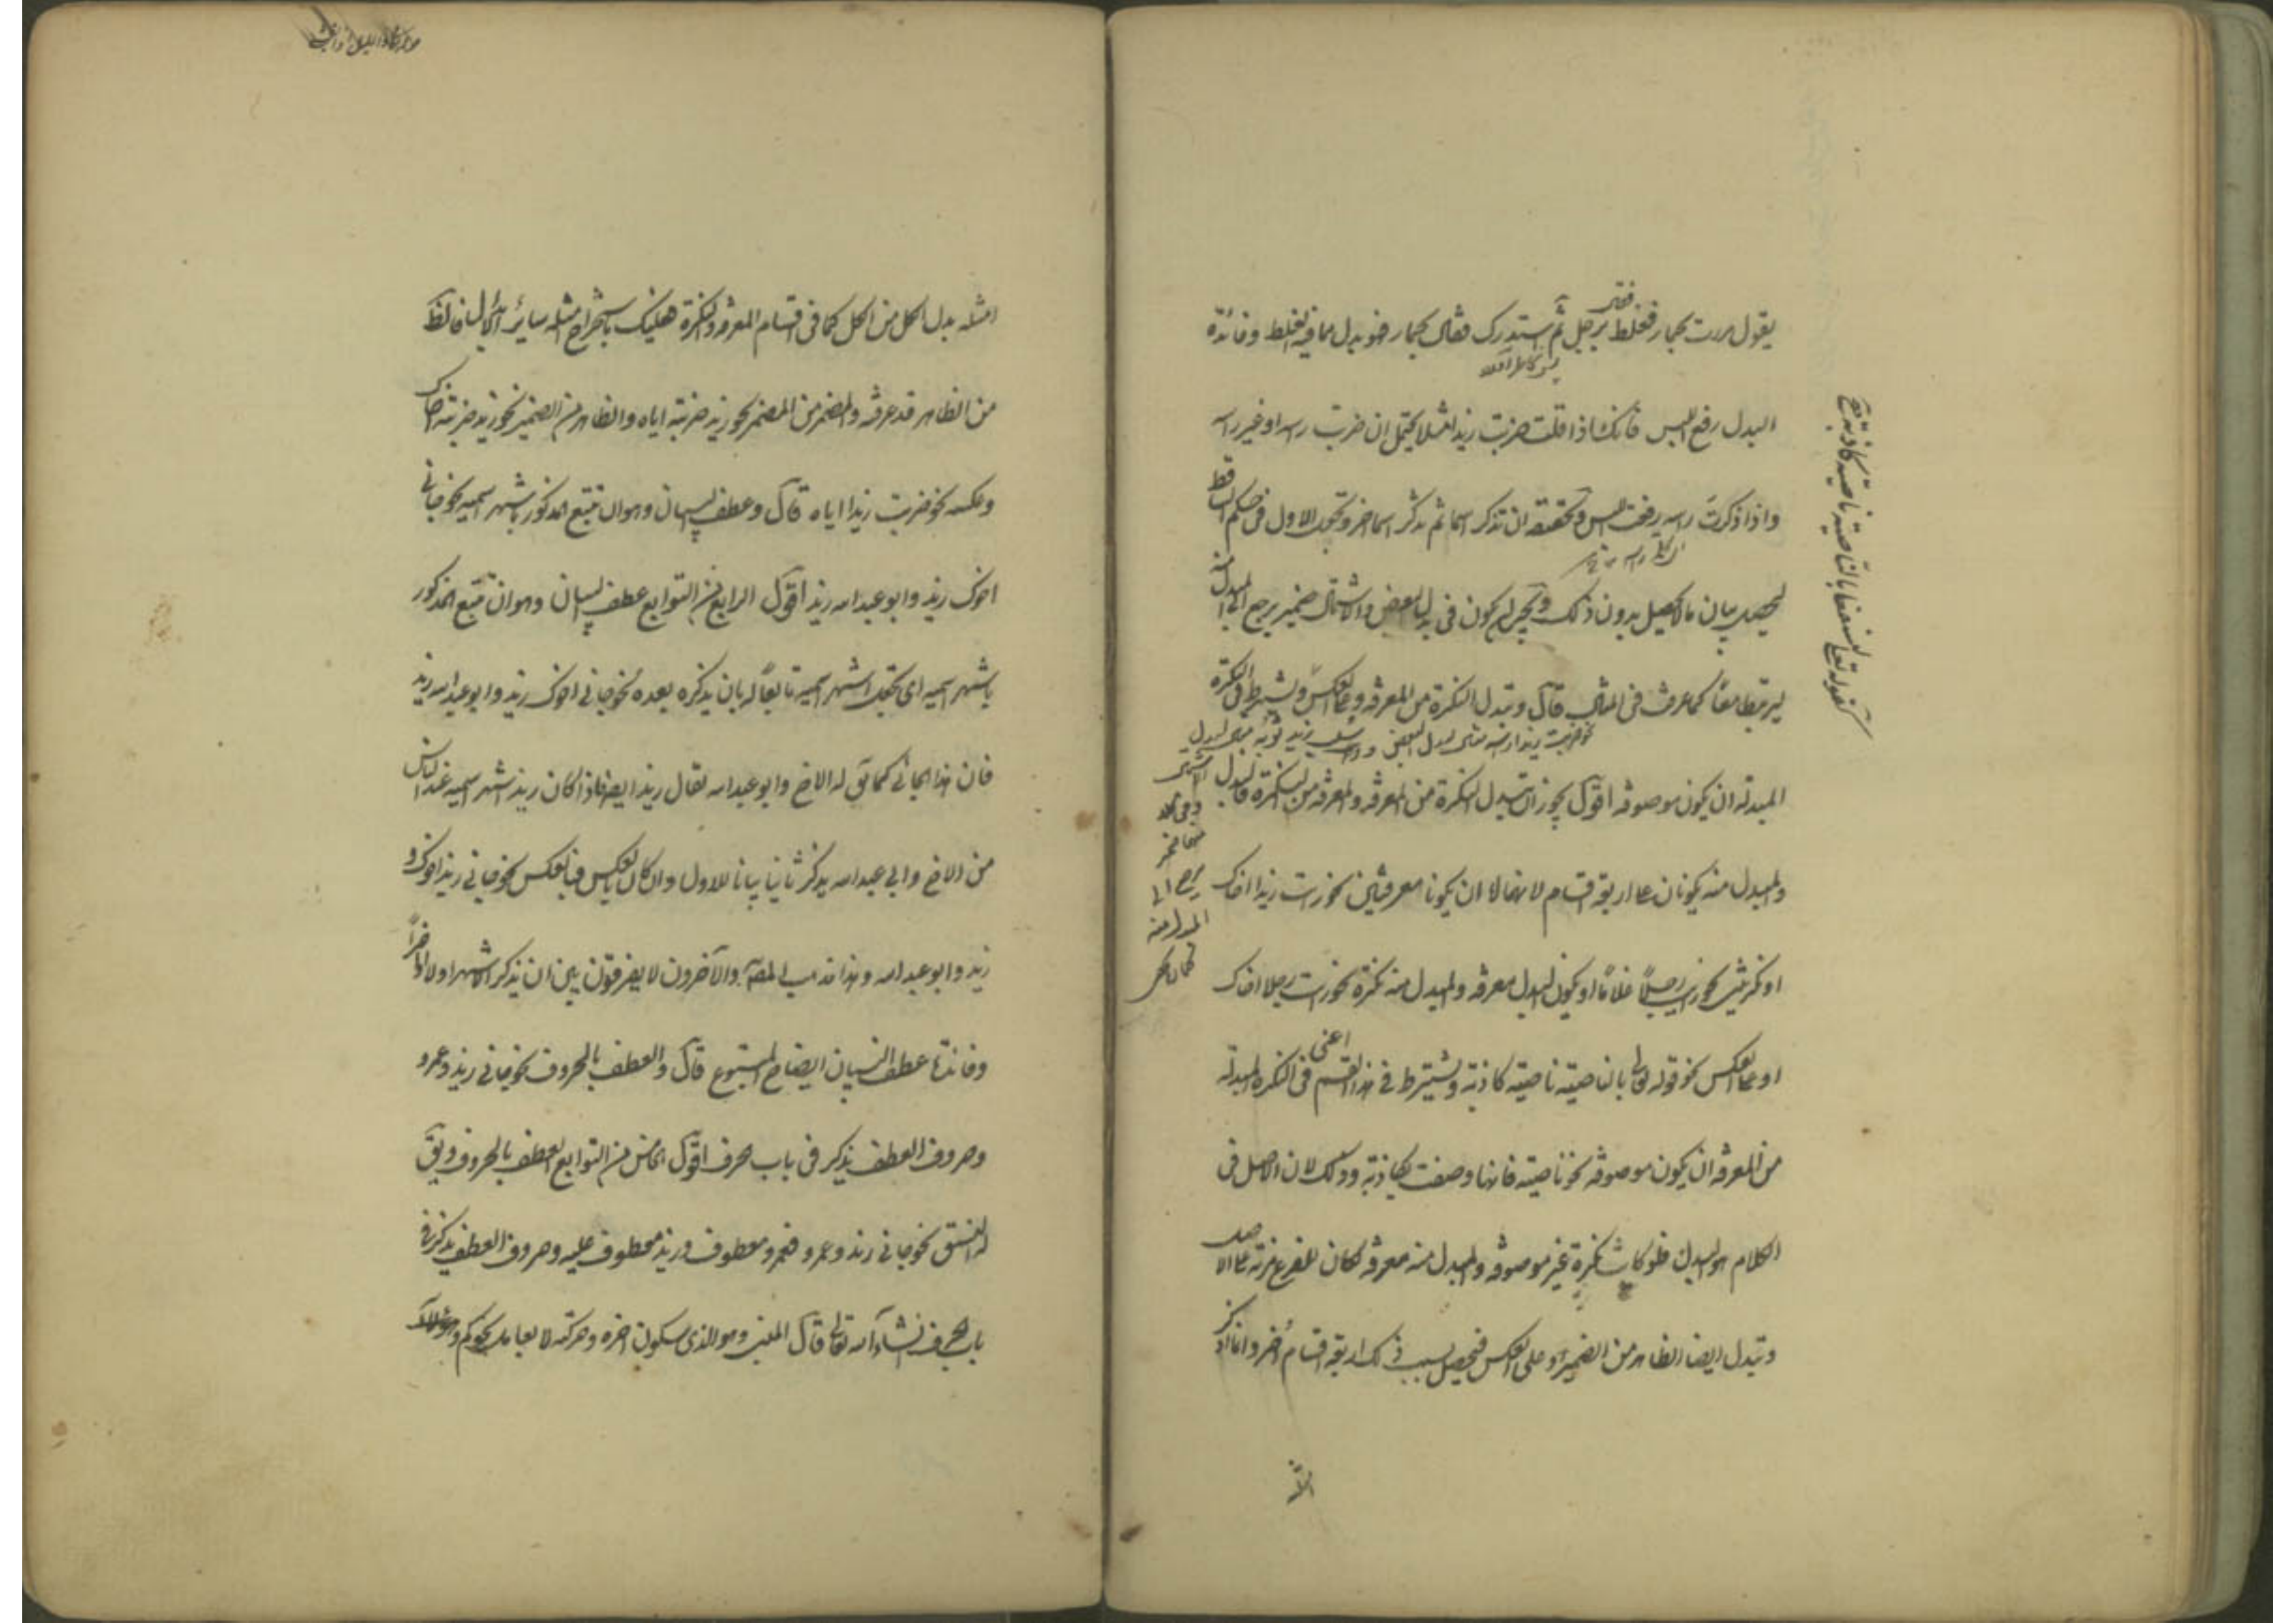 يقول مررت بحمار فغلط برجل ثم استدرك فقال بحمار فهو بدل مما فيه الغلط وفائدة
البدل رفع اللبس فانك اذا قلت ضربت زيدا مثلا يحتمل ان ضربت راسه او غير راسه
واذا ذكرت راسه رفعت اللبس وتحقيقه ان تذكر اسما ثم تذكر اسما اخر وتجعل الاول في حكم الساقط
ليحصل بيان ما لا يحصل بدون ذلك ويجب ان يكون في بدل البعض والاشتمال ضمير يرجع الى المبدل منه
ليرتبط معا كما عرفت في المثال قال وتبدل النكرة من المعرفة وعلى العكس ويشترط في النكرة
المبدلة ان يكون موصوفة اقول يجوز ان تبدل النكرة من المعرفة والمعرفة من النكرة فالبدل
والمبدل منه يكونان على اربعة اقسام لانهما اما ان يكونا معرفتين نحو رايت زيدا اخاك
او نكرتين نحو رايت رجلا غلاما او يكون البدل معرفة والمبدل منه نكرة نحو رايت رجلا اخاك
او على العكس نحو قوله تعالى بالناصية ناصية كاذبة ويشترط في هذا القسم اعنى في النكرة المبدلة
من المعرفة ان يكون موصوفة نحو ناصية فانها وصفت بكاذبة وذلك لان الاصل في
الكلام هو البدل فلو كانت نكرة غير موصوفة والمبدل منه معرفة لكان للفرع مزية على الاصل
وتبدل ايضا الظاهر من الضمير او على العكس فيحصل بسبب ذلك اربعة اقسام اخر وانما ذكر
كقوله تعالى لنسفعا بالناصية ناصية كاذبة
نحو ضربت زيدا راسه مثال لبدل البعض و سلب زيد ثوبه مثال لبدل
الاشتمال
يرجع الى
المبدل منه
امثلة بدل الكل من الكل كما في اقسام المعرفة والنكرة فعليك باستخراج امثلة سائر الابدال فالظاهر
من الظاهر قد عرفته والمضمر من المضمر نحو زيد ضربته اياه والظاهر من الضمير نحو زيد ضربته اخاك
وعكسه نحو ضربت زيدا اياه قال وعطف البيان وهو ان تتبع المذكور باشهر اسميه نحو جاءني
اخوك زيد وابو عبد الله زيد اقول الرابع من التوابع عطف البيان وهو ان تتبع المذكور
باشهر اسميه اى تجعل اشهر اسميه تابعا له بان يذكره بعده نحو جاءني اخوك زيد وابو عبد الله زيد
فان هذا الجائي كما يق له الاخ وابو عبد الله يقال زيد ايضا فاذا كان زيد اشهر اسميه عند الناس
من الاخ وابي عبد الله يذكر ثانيا بيانا للاول وان كان بالعكس فبالعكس نحو جاءني زيد اخوك و
زيد وابو عبد الله وهذا مذهب المصنف والآخرون لا يفرقون بين ان يذكر الاشهر اولا او اخرا
وفائدة عطف البيان ايضاح المتبوع قال والعطف بالحروف نحو جاءني زيد وعمرو
وحروف العطف يذكر في باب الحرف اقول الخامس من التوابع العطف بالحروف ويق
له النسق نحو جاءني زيد وعمرو فعمرو معطوف وزيد معطوف عليه وحروف العطف يذكر في
باب الحرف انشاء الله تعالى قال المبنى وهو الذى سكون اخره وحركته لا بعامل نحو كم